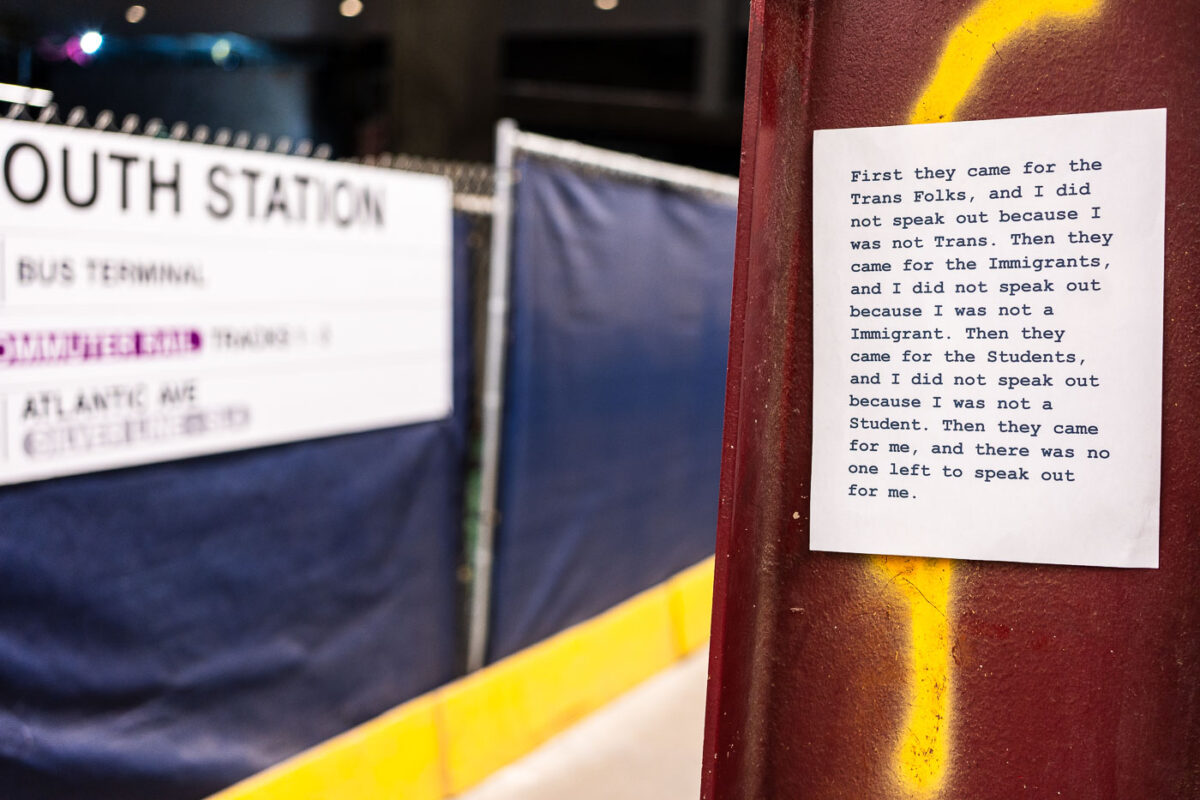 OUTH STATION
BUS TERMINAL
OMMUTER RAIL TRACKS 1-
ATLANTIC AVE
First they came for the
Trans Folks, and I did
not speak out because I
was not Trans. Then they
came for the Immigrants,
and I did not speak out
because I was not a
Immigrant. Then they
came for the Students,
and I did not speak out
because I was not a
Student. Then they came
for me, and there was no
one left to speak out
for me.